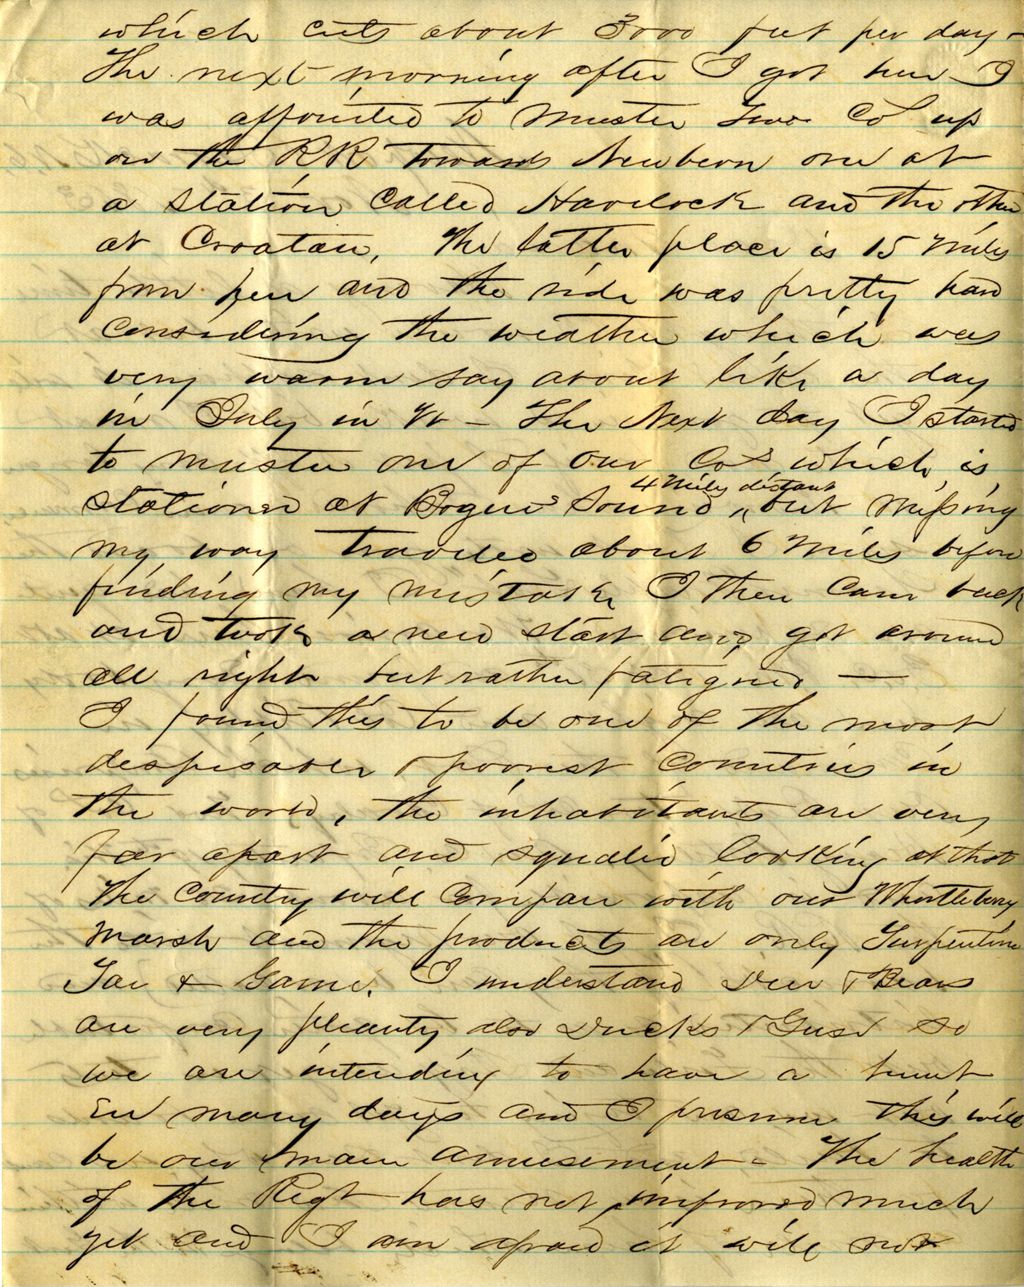 which cuts about 3000 feet per day -
The next morning after I got here I
was appointed to muster two Cos up
on the RR towards Newbern one at
a station called Havelock and the other
at Croatan, The latter place is 15 miles
from here and the ride was pretty hard
considering the weather which was
very warm say about like a day
in July in Vt - The Next day I started
to muster one of our Cos which is
stationed at Bogue Sound, 4 miles distant but missing
my way traveled about 6 miles before
finding my mistake I then came back
and took a new start and got around
all right but rather fatigued —
I found this to be one of the most
despisable & poorest countries in
the world, the inhabitants are very
far apart and squalid looking at that
The country will compare with our Whortleberry
marsh and the products are only Turpentine
Tar & Game. I understand Deer & Bears
are very pleanty also Ducks & Geese so
we are intending to have a hunt
Eer many days and I presume this will
be our main amusement - The health
of the Regt has not improved much
yet and I am afraid it will not